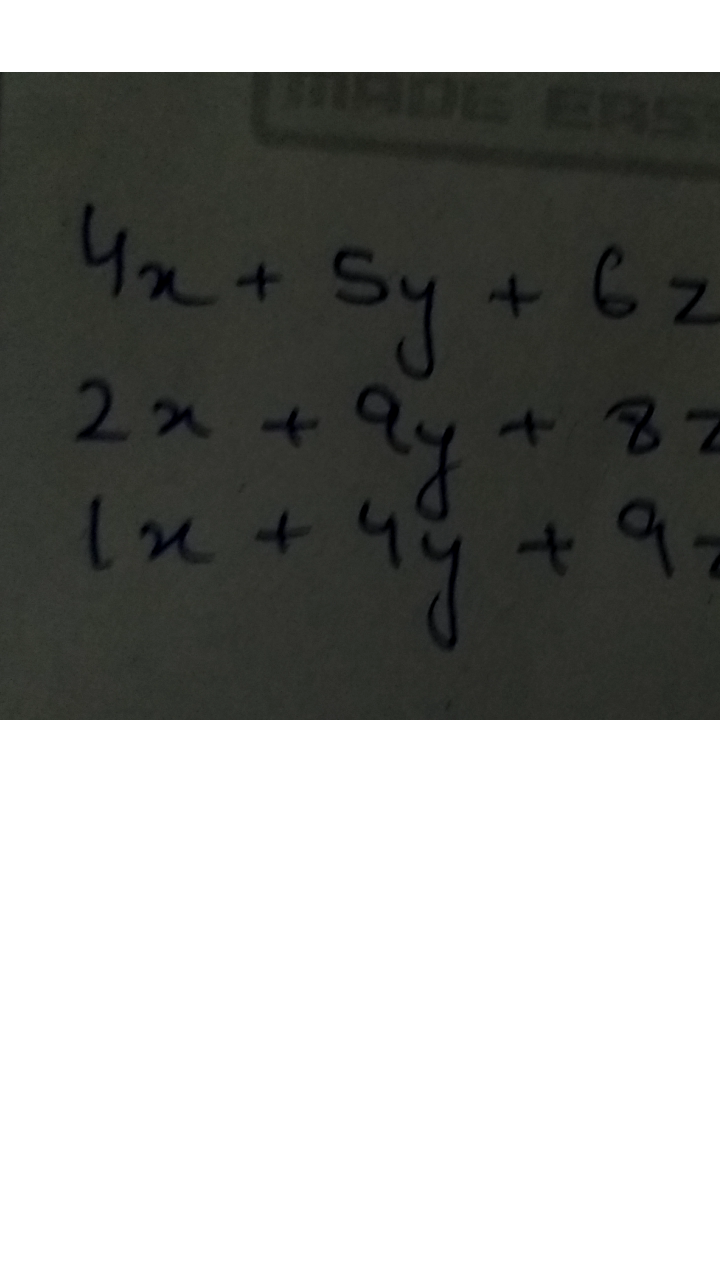 MADE EAS
4x + 5y + 6z
2x + 9y + 8z
1x + 4y + 9z